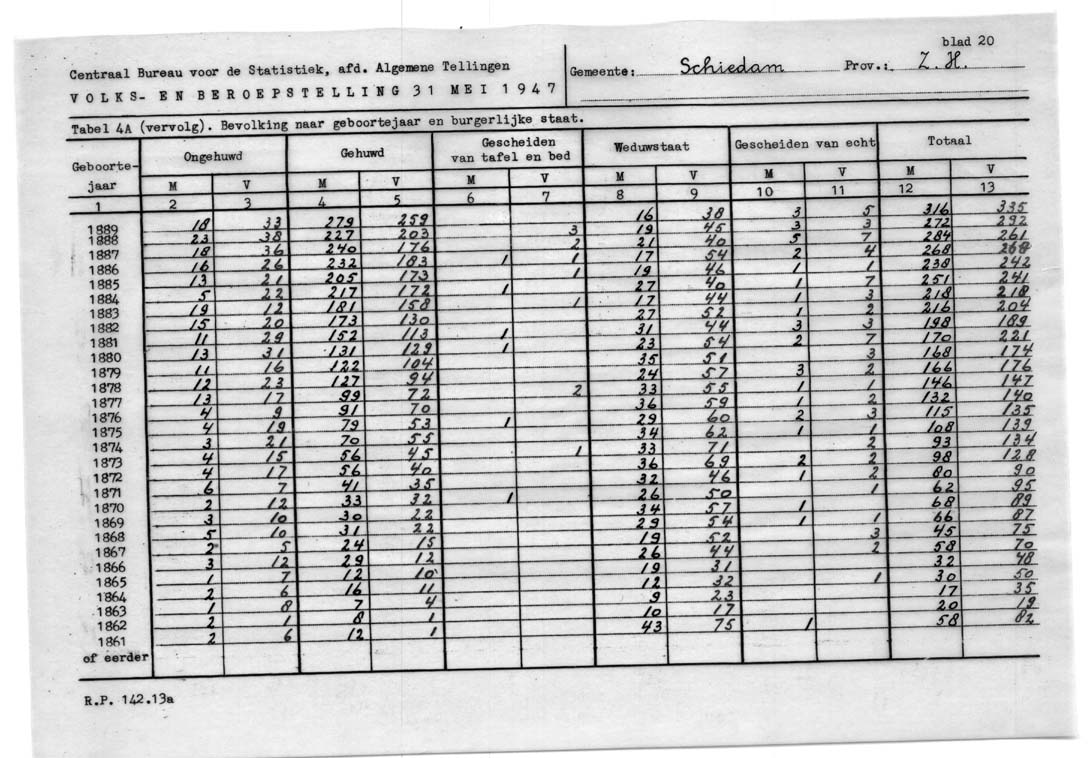 blad 20
Centraal Bureau voor de Statistiek, afd. Algemene Tellingen Gemeente: Schiedam Prov.: Z.H.
VOLKS- EN BEROEPSTELLING 31 MEI 1947
Tabel 4A (vervolg). Bevolking naar geboortejaar en burgerlijke staat.
Geboorte-jaar Ongehuwd Gehuwd Gescheiden van tafel en bed Weduwstaat Gescheiden van echt Totaal
M V M V M V M V M V M V
1 2 3 4 5 6 7 8 9 10 11 12 13
1889 18 33 279 259 16 38 3 5 316 335
1888 23 38 227 203 3 19 45 3 3 272 292
1887 18 36 240 176 2 21 40 5 7 284 261
1886 16 26 232 183 1 1 17 54 2 4 268 268
1885 13 21 205 173 1 19 46 1 1 238 242
1884 5 22 217 172 1 27 40 1 7 251 241
1883 19 12 181 158 1 17 44 1 3 218 218
1882 15 20 173 130 27 52 1 2 216 204
1881 11 29 152 113 1 31 44 3 3 198 189
1880 13 31 131 129 1 23 54 2 7 170 221
1879 11 16 122 104 35 51 3 168 174
1878 12 23 127 94 24 57 3 2 166 176
1877 13 17 99 72 2 33 55 1 1 146 147
1876 4 9 91 70 36 59 1 2 132 140
1875 4 19 79 53 1 29 60 2 3 115 135
1874 3 21 70 55 34 62 1 1 108 139
1873 4 15 56 45 1 33 71 2 93 134
1872 4 17 56 40 36 69 2 2 98 128
1871 6 7 41 35 32 46 1 2 80 90
1870 2 12 33 32 1 26 50 1 62 95
1869 3 10 30 22 34 57 1 68 89
1868 5 10 31 22 29 54 1 1 66 87
1867 2 5 24 15 19 52 3 45 75
1866 3 12 29 12 26 44 2 58 70
1865 1 7 12 10 19 31 32 48
1864 2 6 16 11 12 32 1 30 50
1863 1 8 7 4 9 23 17 35
1862 2 1 8 1 10 17 20 19
1861 2 6 12 1 43 75 1 58 82
of eerder
R.P. 142.13a